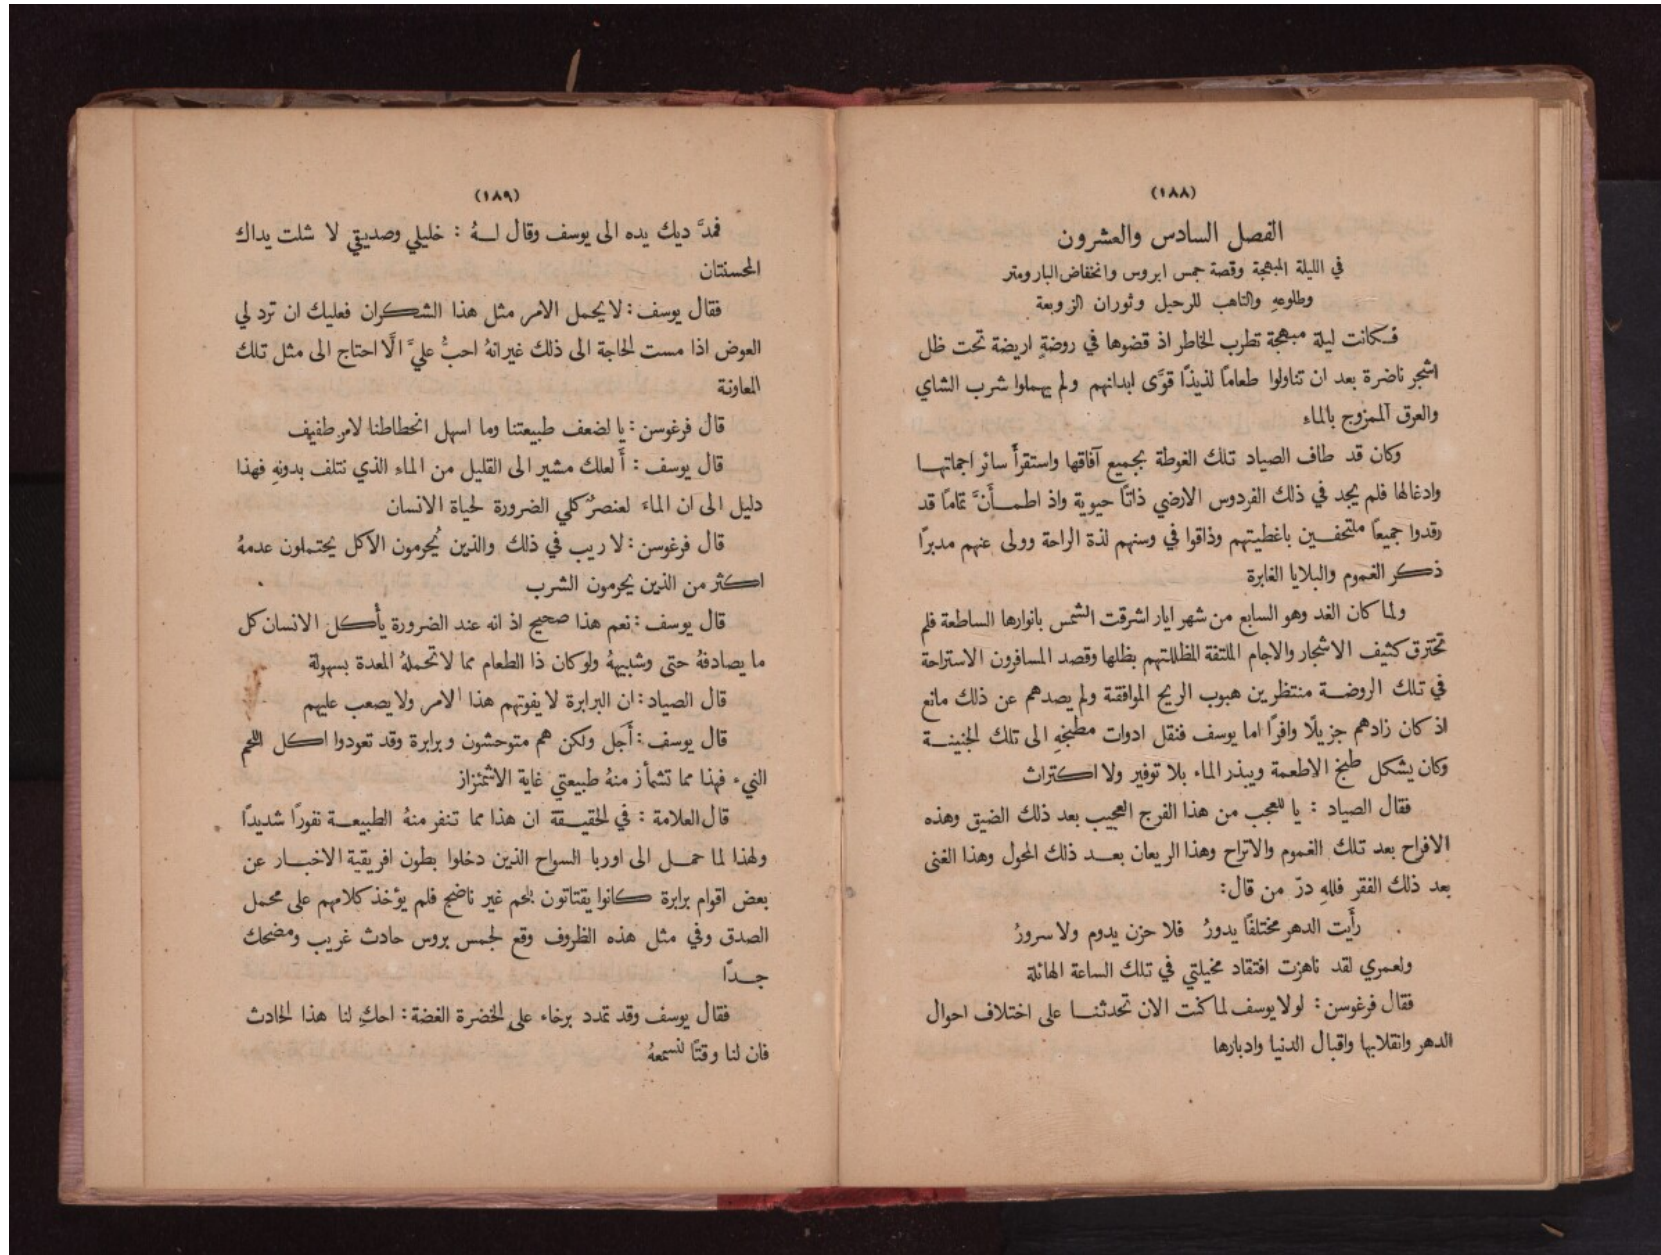 (١٨٨)
الفصل السادس والعشرون
في الليلة المبهجة وقصة جمس ابروس وانخفاض البارومتر
وطلوعهِ والتاهب للرحيل وثوران الزوبعة
فكانت ليلة مبهجة تطرب الخاطر اذ قضوها في روضةٍ اريضة تحت ظل
اشجر ناضرة بعد ان تناولوا طعامًا لذيذًا قوَّى ابدانهم ولم يهملوا شرب الشاي
والعرق الممزوج بالماء
وكان قد طاف الصياد تلك الغوطة بجميع آفاقها واستقرأ سائر اجماتها
وادغالها فلم يجد في ذلك الفردوس الارضي ذاتًا حيوية واذ اطمأَنَّ تمامًا قد
رقدوا جميعًا ملتحفين باغطيتهم وذاقوا في وسنهم لذة الراحة وولى عنهم مدبرًا
ذكر الغموم والبلايا الغابرة
ولما كان الغد وهو السابع من شهر ايار اشرقت الشمس بانوارها الساطعة فلم
تخترق كثيف الاشجار والاجام الملتفة المظللتهم بظلها وقصد المسافرون الاستراحة
في تلك الروضة منتظرين هبوب الريح الموافقة ولم يصدهم عن ذلك مانع
اذ كان زادهم جزيلًا وافرًا اما يوسف فنقل ادوات مطبخهِ الى تلك الجنينة
وكان يشكل طبخ الاطعمة ويبذر الماء بلا توفير ولا اكتراث
فقال الصياد : يا للعجب من هذا الفرج العجيب بعد ذلك الضيق وهذه
الافراح بعد تلك الغموم والاتراح وهذا الريعان بعد ذلك المحول وهذا الغنى
بعد ذلك الفقر فللهِ درّ من قال:
رأَيت الدهر مختلفًا يدورُ فلا حزن يدوم ولا سرورُ
ولعمري لقد ناهزت افتقاد مخيلتي في تلك الساعة الهائلة
فقال فرغوسن: لولا يوسف لما كنت الان تحدثنا على اختلاف احوال
الدهر وانقلابها واقبال الدنيا وادبارها
(١٨٩)
فمدَّ ديك يده الى يوسف وقال لهُ : خليلي وصديقي لا شلت يداك
المحسنتان
فقال يوسف: لا يحمل الامر مثل هذا الشكران فعليك ان ترد لي
العوض اذا مست الحاجة الى ذلك غير انهُ احبُّ عليَّ الَّا احتاج الى مثل تلك
المعاونة
قال فرغوسن: يا لضعف طبيعتنا وما اسهل انحطاطنا لامر طفيف
قال يوسف : أَلعلك مشير الى القليل من الماء الذي نتلف بدونهِ فهذا
دليل الى ان الماء لعنصرٌ كلي الضرورة لحياة الانسان
قال فرغوسن: لا ريب في ذلك والذين يُحرمون الاكل يحتملون عدمهُ
اكثر من الذين يحرمون الشرب
قال يوسف : نعم هذا صحيح اذ انه عند الضرورة يأْكل الانسان كل
ما يصادفهُ حتى وشبيههُ ولو كان ذا الطعام مما لا تحملهُ المعدة بسهولة
قال الصياد: ان البرابرة لا يفوتهم هذا الامر ولا يصعب عليهم
قال يوسف: أَجل ولكن هم متوحشون وبرابرة وقد تعودوا اكل اللحم
النيء فهذا مما تشمأز منهُ طبيعتي غاية الاشمئزاز
قال العلامة : في الحقيقة ان هذا مما تنفر منهُ الطبيعة نفورًا شديدًا
ولهذا لما حمل الى اوربا السواح الذين دخلوا بطون افريقية الاخبار عن
بعض اقوام برابرة كانوا يقتاتون بلحم غير ناضج فلم يؤخذ كلامهم على محمل
الصدق وفي مثل هذه الظروف وقع لجمس بروس حادث غريب ومضحك
جدًا
فقال يوسف وقد تمدد برخاء على الخضرة الغضة: احكِ لنا هذا الحادث
فان لنا وقتًا لنسمعهُ